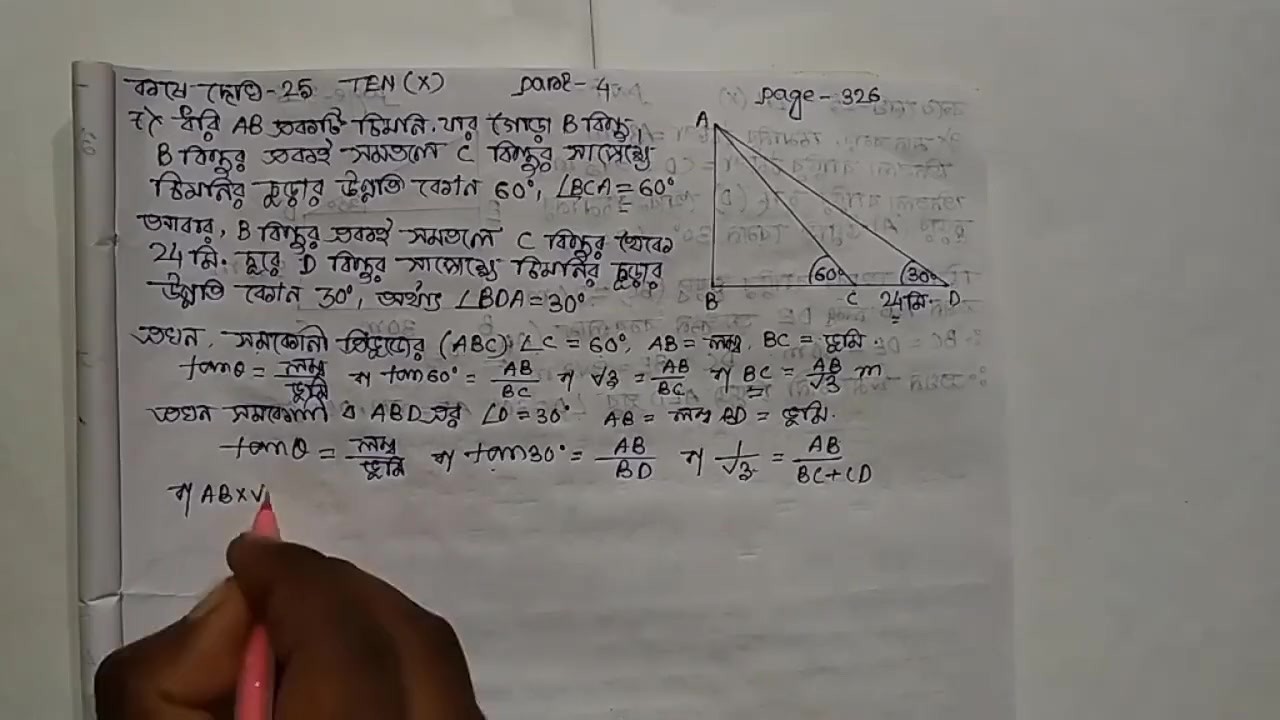 কষে দেখি-25 TEN (X) part-4 page-326
7> ধরি AB একটি চিমনি. যার গোড়া B বিন্দু,
B বিন্দুর একই সমতলে C বিন্দুর সাপেক্ষে
চিমনির চূড়ার উন্নতি কোণ 60°, ∠BCA = 60°
আবার, B বিন্দুর একই সমতলে C বিন্দুর থেকে
24 মি. দূরে D বিন্দুর সাপেক্ষে চিমনির চূড়ার
উন্নতি কোণ 30°, অর্থাৎ ∠BDA = 30°
A
60°
30°
B C 24 মি. D
এখন, সমকোণী ত্রিভুজের (ABC) ∠C = 60°, AB = লম্ব, BC = ভূমি.
tanθ = লম্ব/ভূমি বা tan60° = AB/BC বা √3 = AB/BC বা BC = AB/√3 m
এখন সমকোণী ABD এর ∠D = 30° AB = লম্ব BD = ভূমি.
tanθ = লম্ব/ভূমি বা tan30° = AB/BD বা 1/√3 = AB/BC+CD
বা AB×√